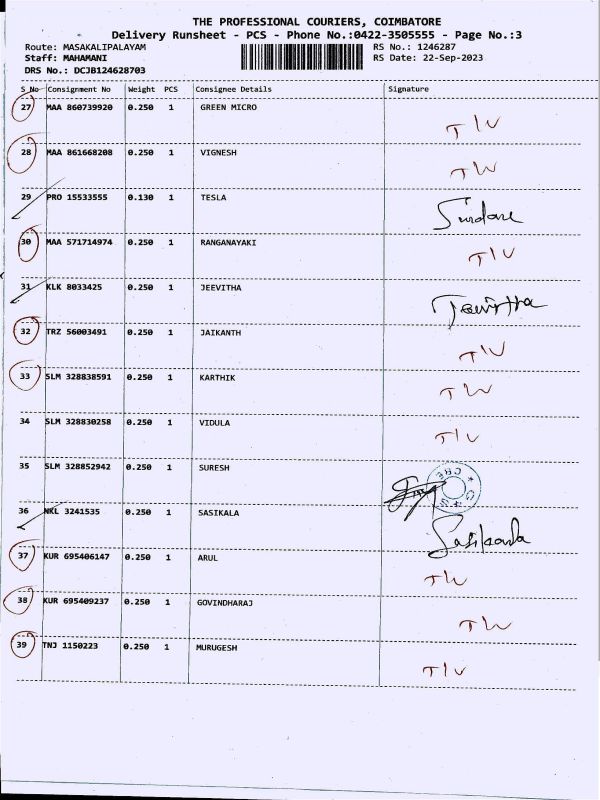 THE PROFESSIONAL COURIERS, COIMBATORE
Delivery Runsheet - PCS - Phone No.:0422-3505555 - Page No.:3
Route: MASAKALIPALAYAM RS No.: 1246287
Staff: MAHAMANI RS Date: 22-Sep-2023
DRS No.: DCJB124628703
S No Consignment No Weight PCS Consignee Details Signature
27 MAA 860739920 0.250 1 GREEN MICRO
T/W
28 MAA 861668208 0.250 1 VIGNESH
TW
29 PRO 15533555 0.130 1 TESLA
30 MAA 571714974 0.250 1 RANGANAYAKI
T/W
31 KLK 8033425 0.250 1 JEEVITHA
32 TRZ 56003491 0.250 1 JAIKANTH
T/W
33 SLM 328838591 0.250 1 KARTHIK
TW
34 SLM 328830258 0.250 1 VIDULA
T/W
35 SLM 328852942 0.250 1 SURESH
CBE
36 NKL 3241535 0.250 1 SASIKALA
Sasikala
37 KUR 695406147 0.250 1 ARUL
TW
38 KUR 695409237 0.250 1 GOVINDHARAJ
TW
39 TNJ 1150223 0.250 1 MURUGESH
T/W